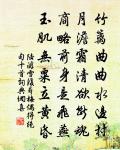 竹篱曲曲水边村
月淡霜清欲断魂
商略前身是飞燕
玉肌无粟立黄昏
陆游雪后寻梅偶得绝
句十首